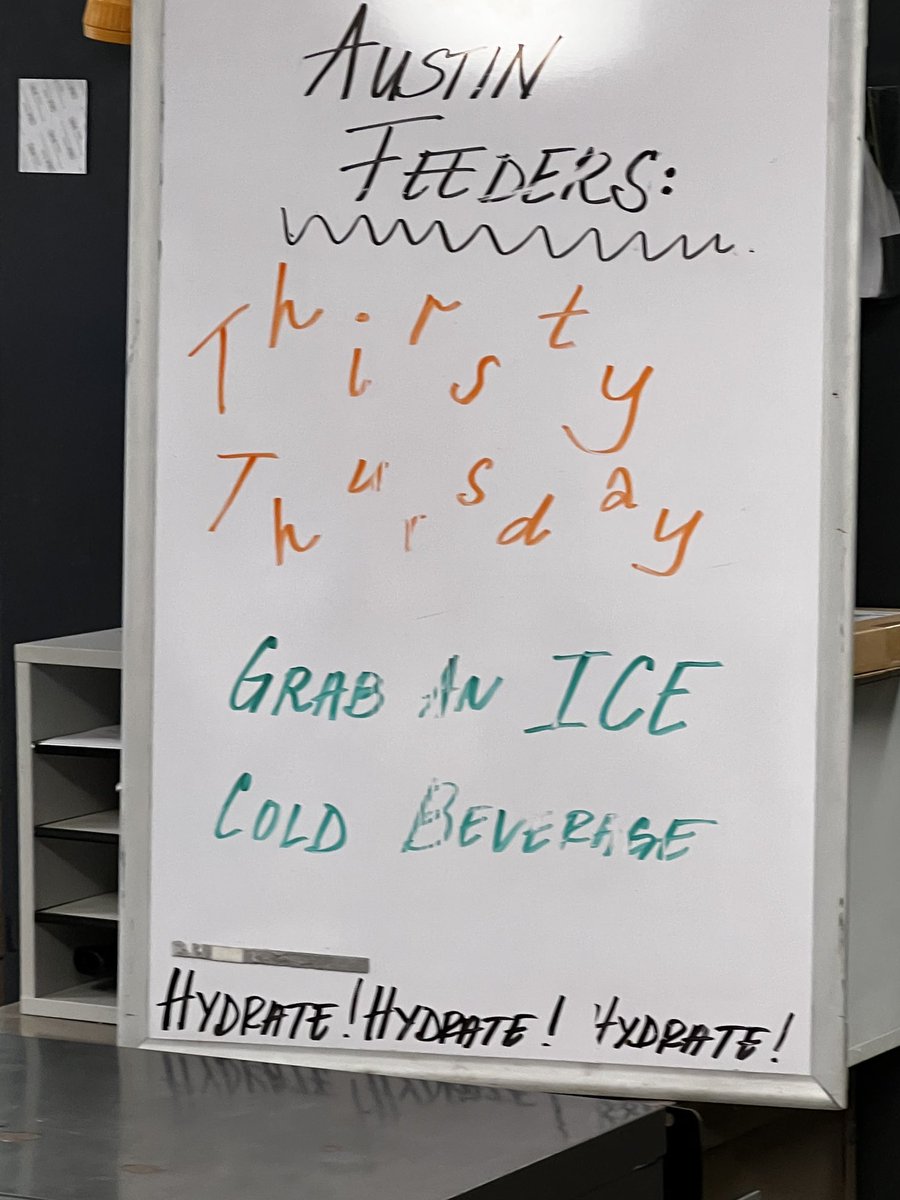 AUSTIN
FEEDERS:
Thirsty
Thursday
GRAB AN ICE
COLD BEVERAGE
HYDRATE! HYDRATE! HYDRATE!